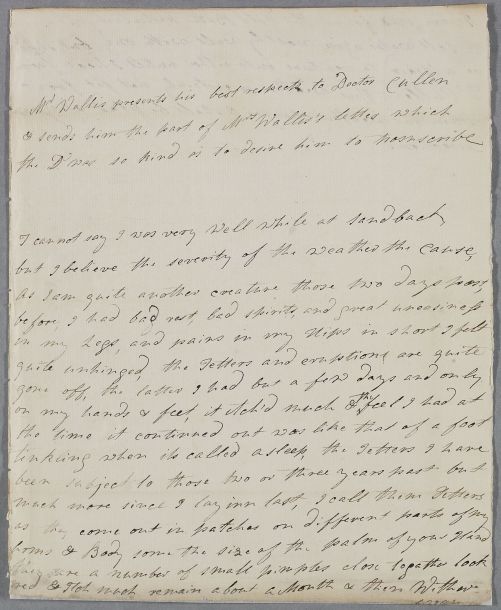 Mr. Wallis presents his best respects to Doctor Cullen
& sends him the part of Mrs Wallis's letter which
the Dr was so kind as to desire him to transcribe
I cannot say I was very well while at Sandbach,
but I believe the severity of the weather the cause,
as I am quite another creature those two days past
before, I had bad rest, bad spirits, and great uneasiness
in my Legs, and pains in my Hips in short I felt
quite unhinged, the Tetters and eruptions are quite
gone off, the latter I had but a few days and only
on my hands & feet, it itch'd much & the feel I had at
the time it continued out was like that of a foot
tinkling when its called asleep, the Tetters I have
been subject to those two or three years past but
much more since I lay inn last, I call them Tetters
as they come out in patches on different parts of my
& Body some the size of the palm of your Hand
they are a number of small pimples close togather look
red & Itch much remain about a Month & then Wither